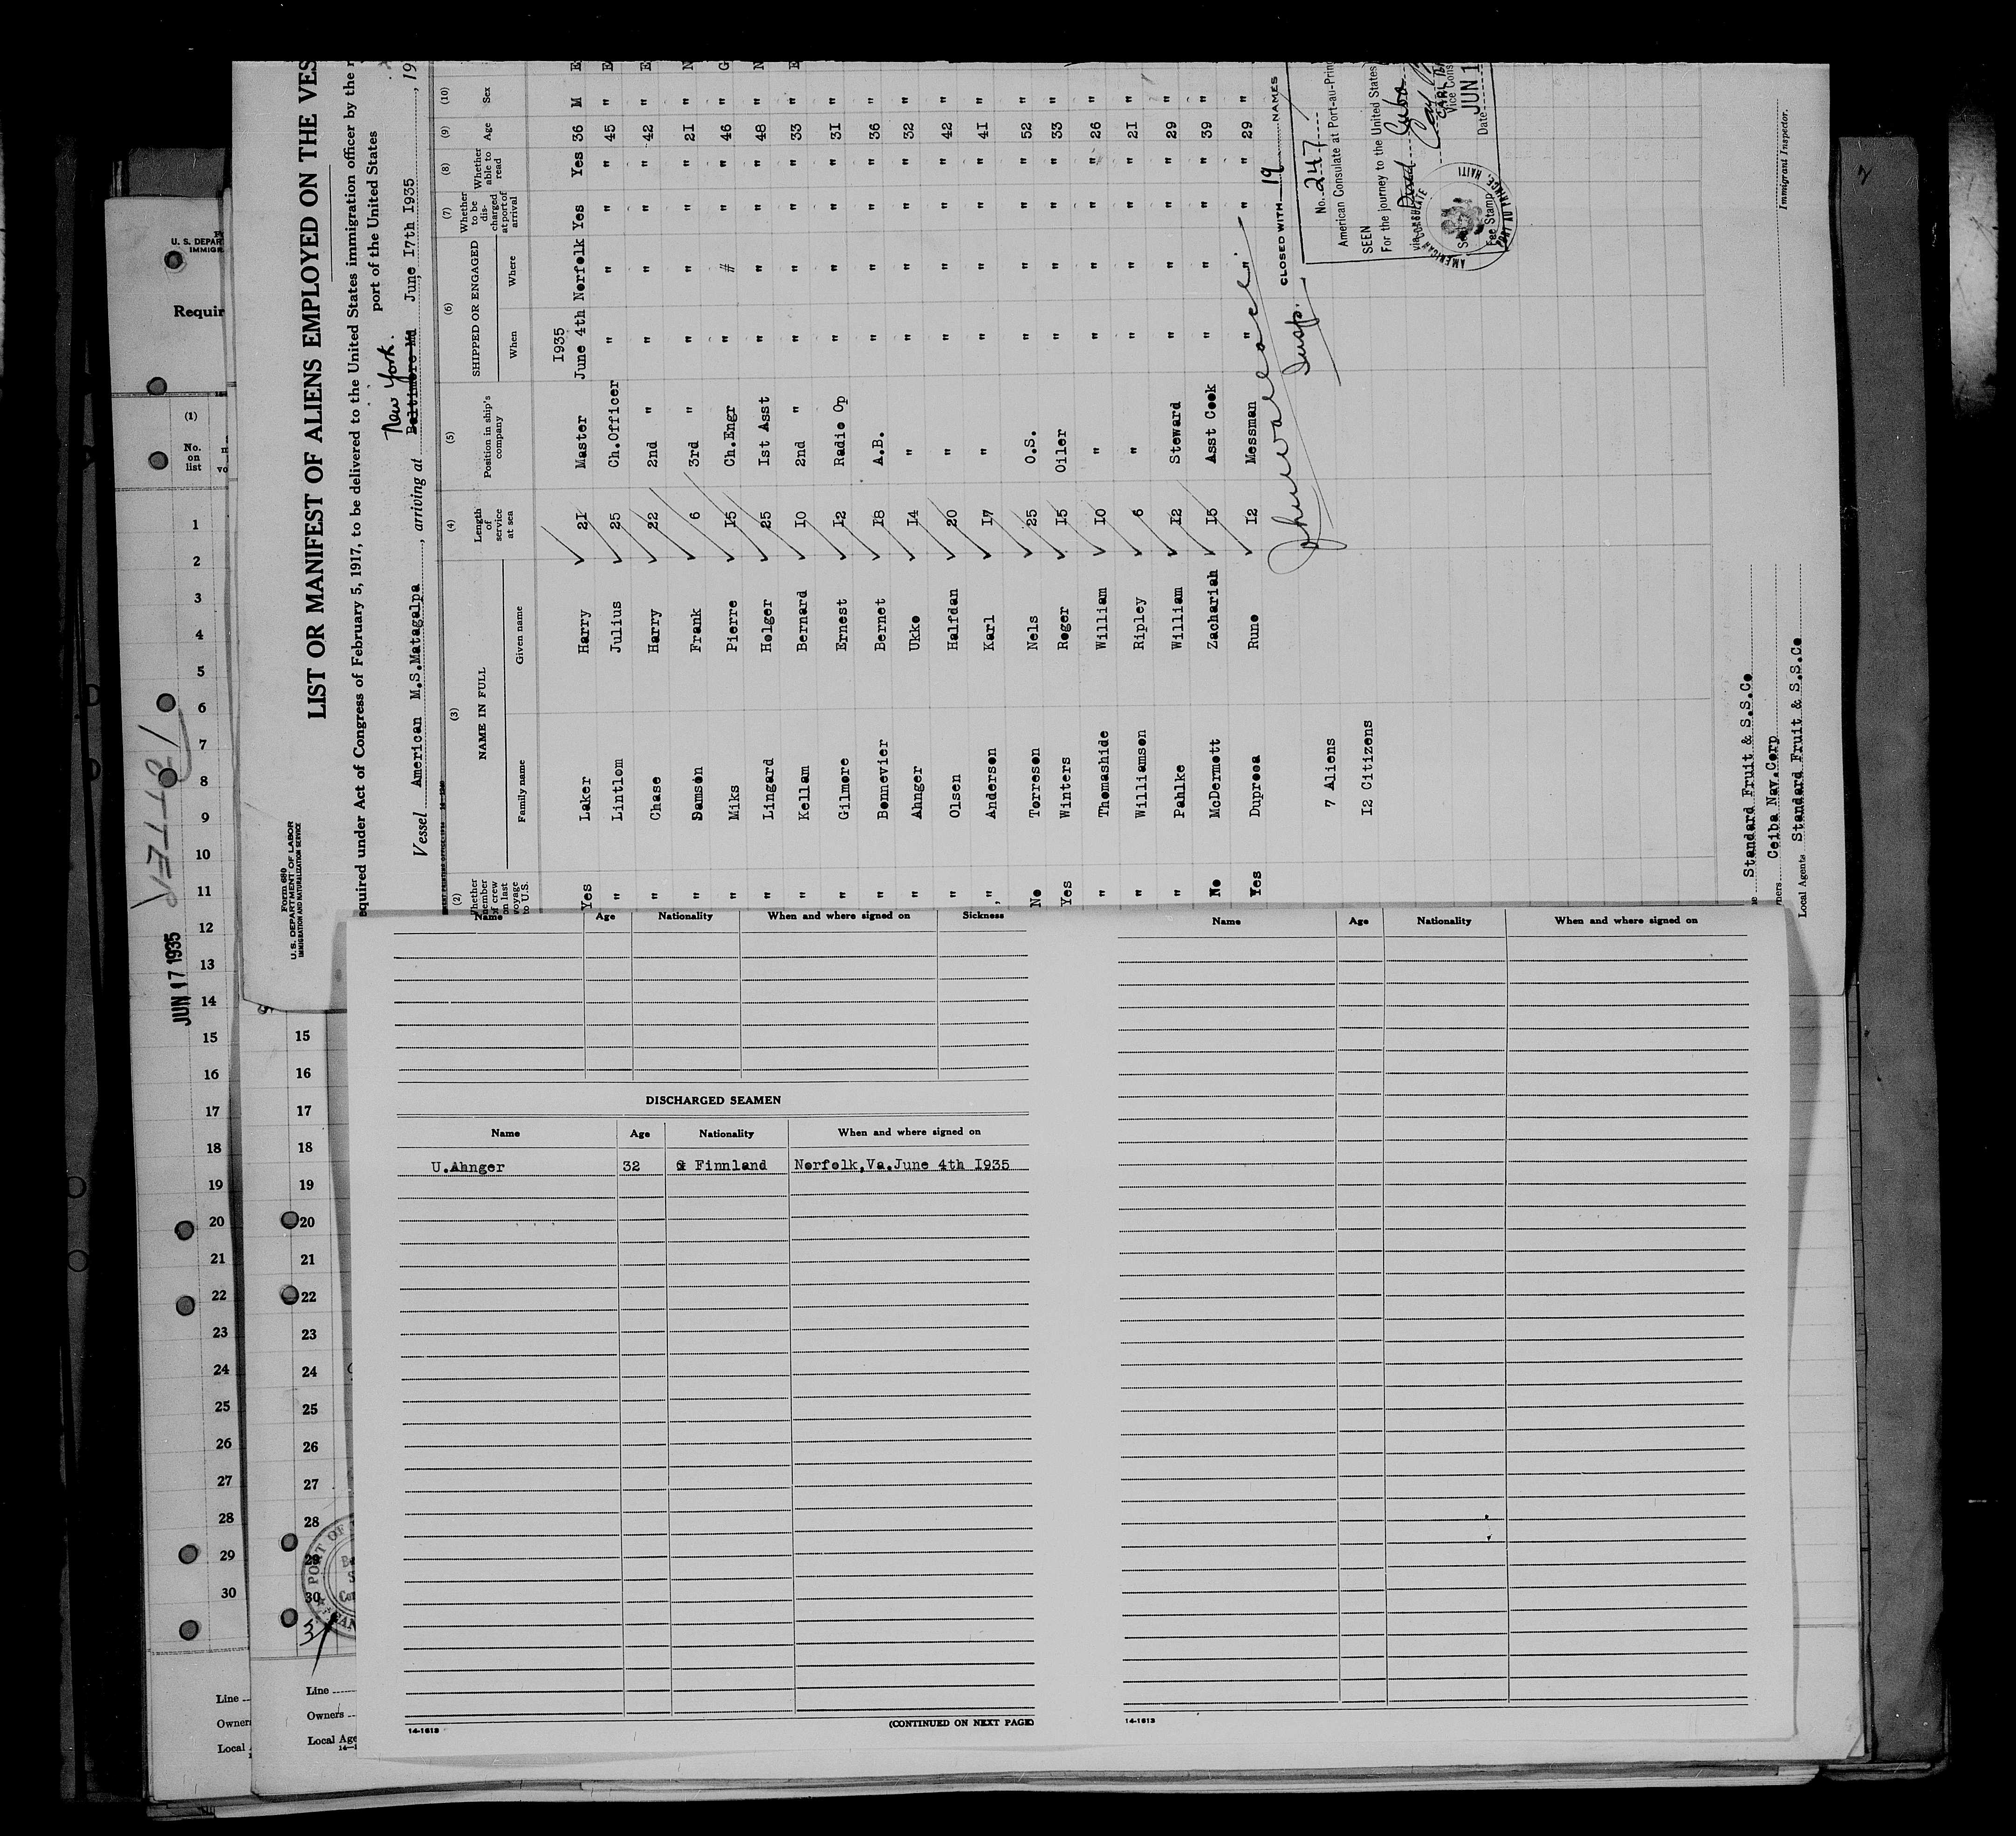 Form 680
U. S. DEPARTMENT OF LABOR
IMMIGRATION AND NATURALIZATION SERVICE
LIST OR MANIFEST OF ALIENS EMPLOYED ON THE VES
equired under Act of Congress of February 5, 1917, to be delivered to the United States immigration officer by the r
port of the United States
New York.
Vessel American M.S.Matagalpa, arriving at Baltimore Md June, I7th I935, 19
(2) (3) (4) (5) (6) (7) (8) (9) (10)
Whether member of crew on last voyage to U.S. NAME IN FULL Length of service at sea Position in ship's company SHIPPED OR ENGAGED Whether to be discharged at port of arrival Whether able to read Age Sex
Family name Given name When Where
I935
Yes Laker Harry 21 Master June 4th Norfolk Yes Yes 36 M E
" Lintlom Julius 25 Ch.Officer " " " " 45 " E
" Chase Harry 22 2nd " " " " " 42 " E
" Damson Frank 6 3rd " " " " " 21 " N
" Miks Pierre I5 Ch.Engr " # " " 46 " G
" Lingard Holger 25 Ist Asst " " " " 48 " N
" Kellam Bernard IO 2nd " " " " " 33 " E
" Gilmore Ernest I2 Radio Op " " " " 31 "
" Bennevier Bernet I8 A.B. " " " " 36 "
" Ahnger Ukko I4 " " " " " 32 "
" Olsen Halfdan 20 " " " " " 42 "
", Anderson Karl I7 " " " " " 4I "
No Torreson Nels 25 O.S. " " " " 52 "
Yes Winters Roger I5 Oiler " " " " 33 "
" Thomashide William IO " " " " " 26 "
" Williamson Ripley 6 " " " " " 21 "
" Pahlke William I2 Steward " " " " 29 "
No McDermott Zachariah I5 Asst Cook " " " " 39 "
Yes Duproea Rune I2 Messman " " " " 29 "
7 Aliens
I2 Citizens
Insp.
CLOSED WITH 19 NAMES
No. 247
American Consulate at Port-au-Prin
SEEN
For the journey to the United States
via Cuba
Vice Cons
JUN 1
Date
Fee Stamp
AMERICAN CONSULATE
PORT AU PRINCE, HAITI
Standard Fruit & S.S.Co
ners Ceiba Nav.Corp
Local Agents Standard Fruit & S.S.Co
Immigrant Inspector.
U. S. DEPAR
IMMIGR
Requir
(1)
No. on list
1
2
3
4
5
6
7
8
9
10
11
12
13
14
15
16
17
18
19
20
21
22
23
24
25
26
27
28
29
30
JUN 17 1935
Line
Owner
Local
15
16
17
18
19
20
21
22
23
24
25
26
27
28
29
30
PORT OF
Line
Owners
Local Age
Name Age Nationality When and where signed on Sickness
DISCHARGED SEAMEN
Name Age Nationality When and where signed on
U.Ahnger 32 Finnland Norfolk,Va.June 4th I935
14-1613 (CONTINUED ON NEXT PAGE)
Name Age Nationality When and where signed on
14-1613